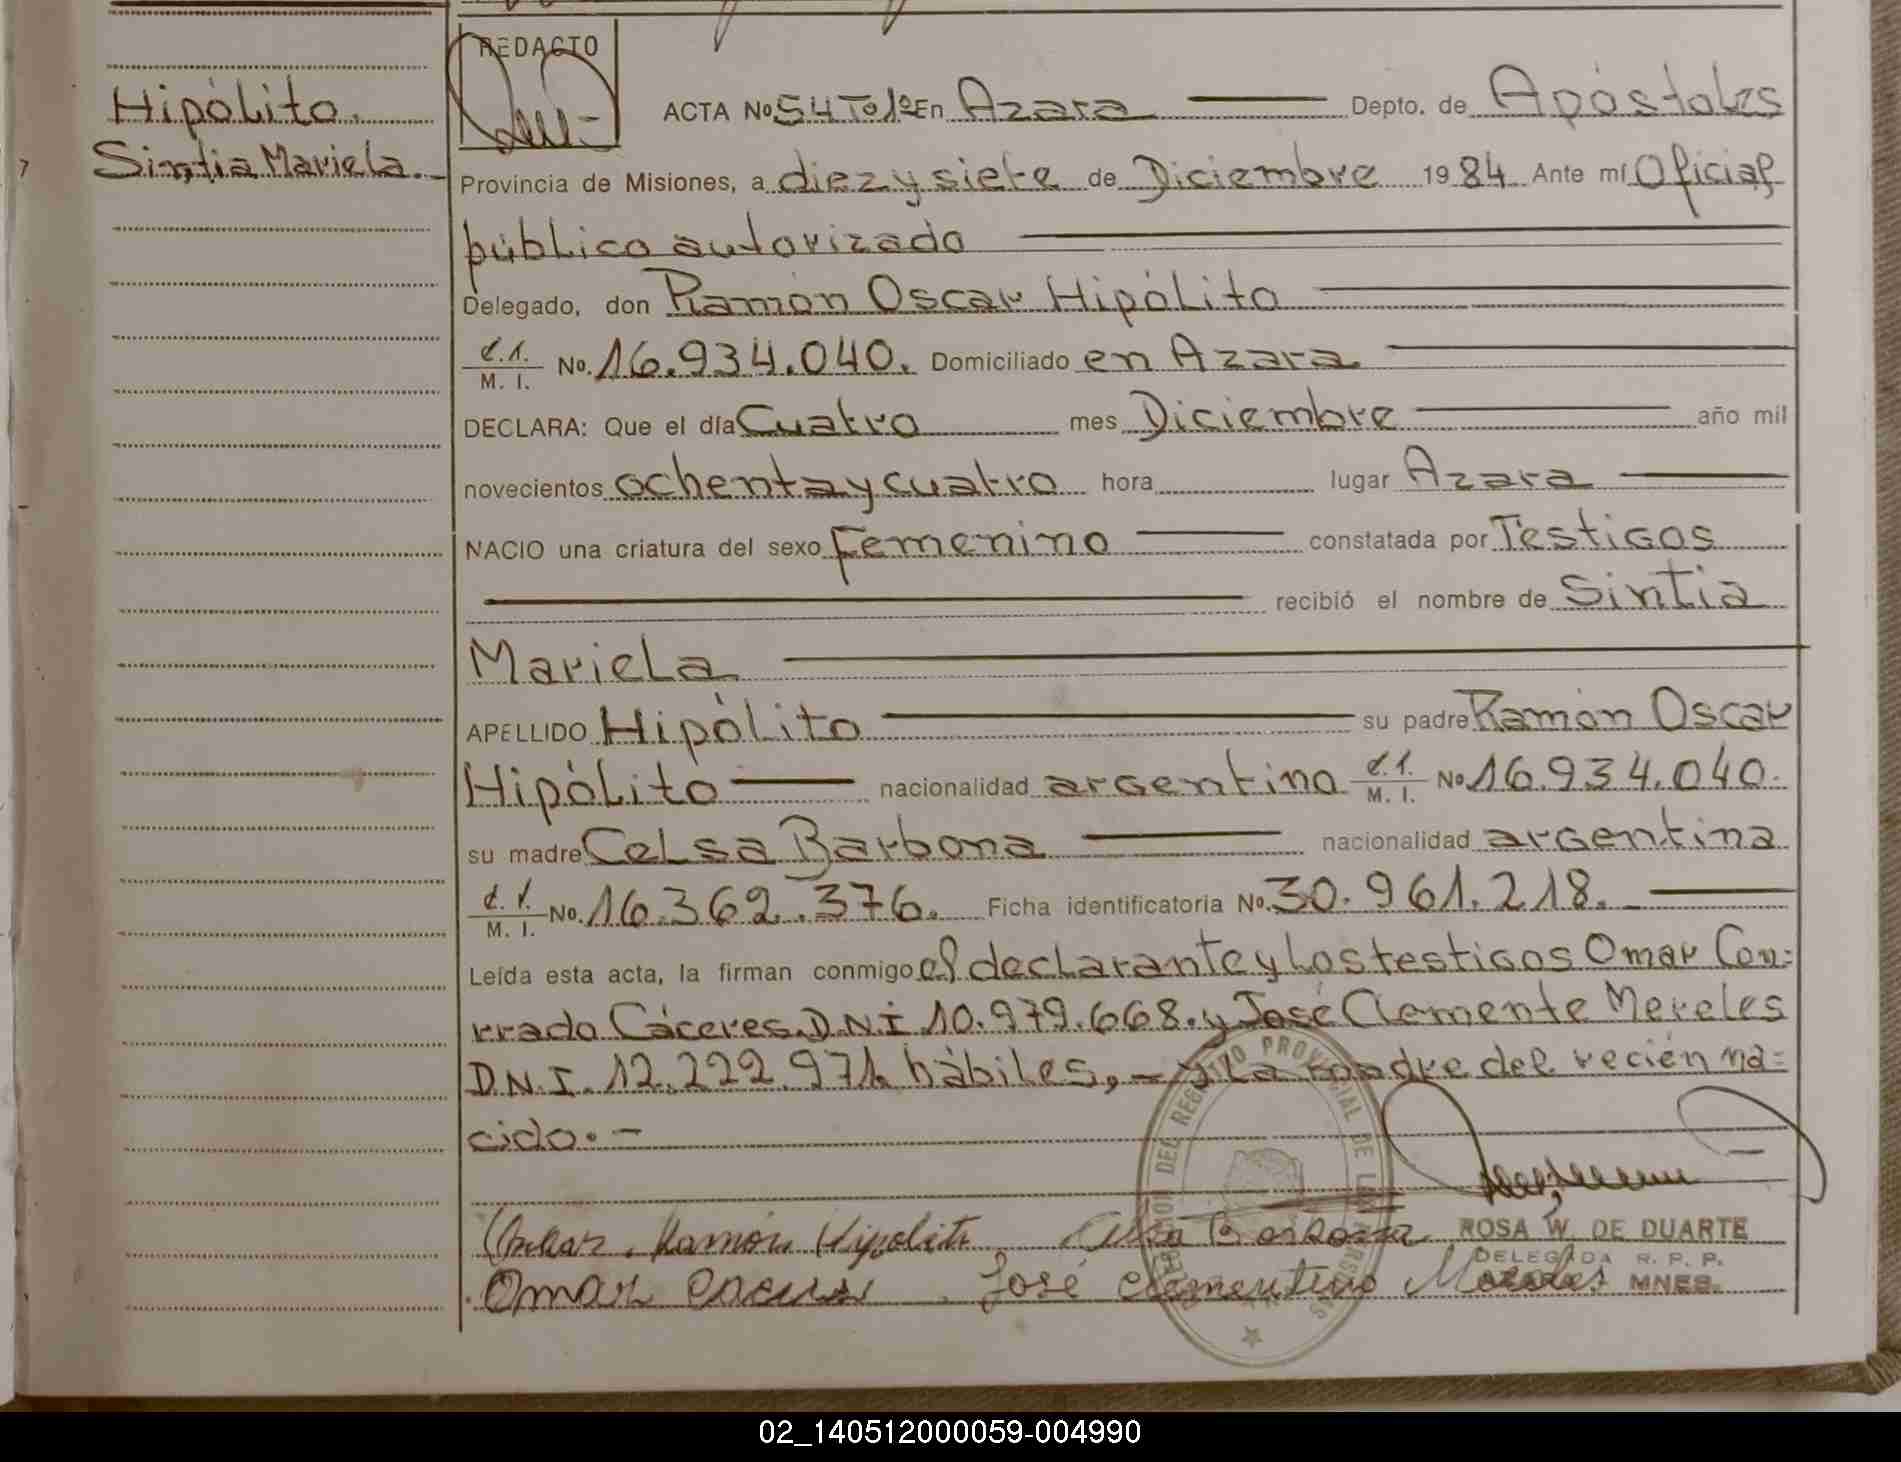 Hipólito.
Sintia Mariela.
REDACTO
ACTA No 54 Tº1º En Azara Depto. de Apóstoles
Provincia de Misiones, a diez y siete de Diciembre 1984 Ante mí Oficial
público autorizado
Delegado, don Ramón Oscar Hipólito
C.I.
M. I. No. 16.934.040. Domiciliado en Azara
DECLARA: Que el día Cuatro mes Diciembre año mil
novecientos ochenta y cuatro hora lugar Azara
NACIO una criatura del sexo Femenino constatada por Testigos
recibió el nombre de Sintia
Mariela
APELLIDO Hipólito su padre Ramón Oscar
Hipólito nacionalidad argentino C.I. M. I. No 16.934.040.
su madre Celsa Barbona nacionalidad argentina
C.I. M. I. No. 16.362.376. Ficha identificatoria No. 30.961.218.
Leída esta acta, la firman conmigo el declarante y los testigos Omar Con-
rrado Cáceres D.N.I 10.979.668. y José Clemente Mereles
D.N.I. 12.222.971, hábiles, - y la madre del recién na=
cido. -
Oscar Ramón Hipolito Celsa Barbona ROSA W. DE DUARTE
DELEGADA R. P. P.
Omar José Clementino AZARA MNES.